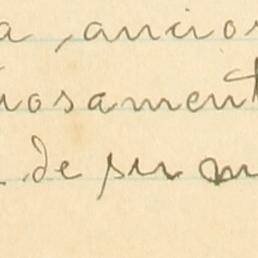 a, ancios
iosament
de su m